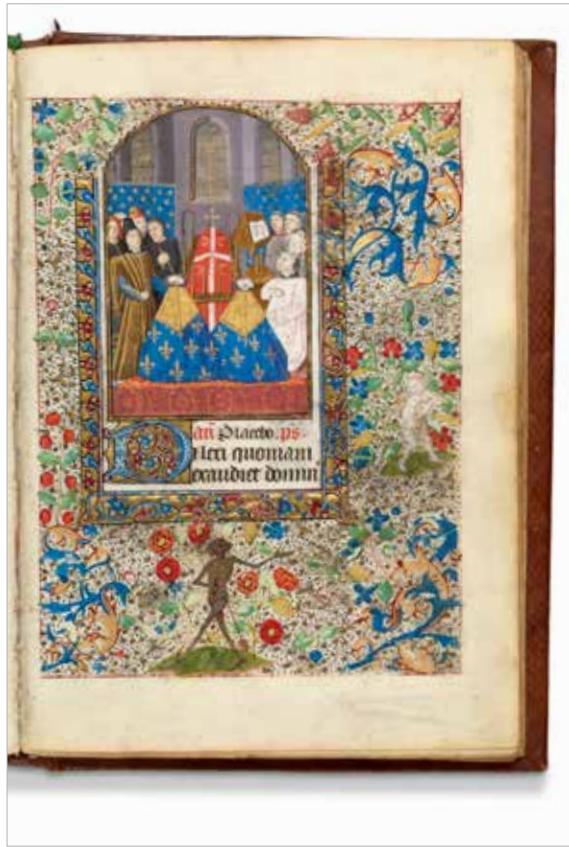 añ Placebo. ps.
Dilexi quoniam
exaudiet domin